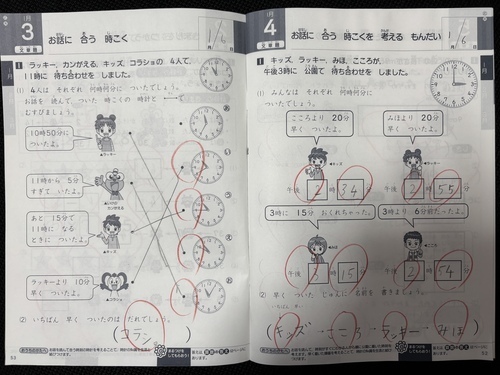 1月
3
文章題
お話に 合う 時こく
1/6
月 日
1 ラッキー、カンがえる、キッズ、コラショの 4人で、
11時に 待ち合わせを しました。
(1) 4人は それぞれ 何時何分に ついたでしょう。
お話を 読んで、ついた 時こくの 時計と
むすびましょう。
10時50分に
ついたよ。
ラッキー
あ
11時から 5分
すぎて ついたよ。
カンがえる
い
あと 15分で
11時に なる
ときに ついたよ。
キッズ
う
ラッキーより 10分
早く ついたよ。
コラショ
え
(2) いちばん 早く ついたのは だれでしょう。
(コラショ)
1月
4
文章題
お話に 合う 時こくを 考える もんだい
1/6
月 日
1 キッズ、ラッキー、みほ、こころが、
午後3時に 公園で 待ち合わせを しました。
(1) みんなは それぞれ 何時何分に
ついたでしょう。
こころより 20分
早く ついたよ。
キッズ
みほより 20分
早く ついたよ。
ラッキー
午後 2 時 34 分
午後 2 時 55 分
3時に 15分 おくれちゃった。
みほ
3時より 6分前だったよ。
こころ
午後 3 時 15 分
午後 2 時 54 分
(2) 早く ついた じゅんに 名前を 書きましょう。
(キッズ・こころ・ラッキー・みほ)